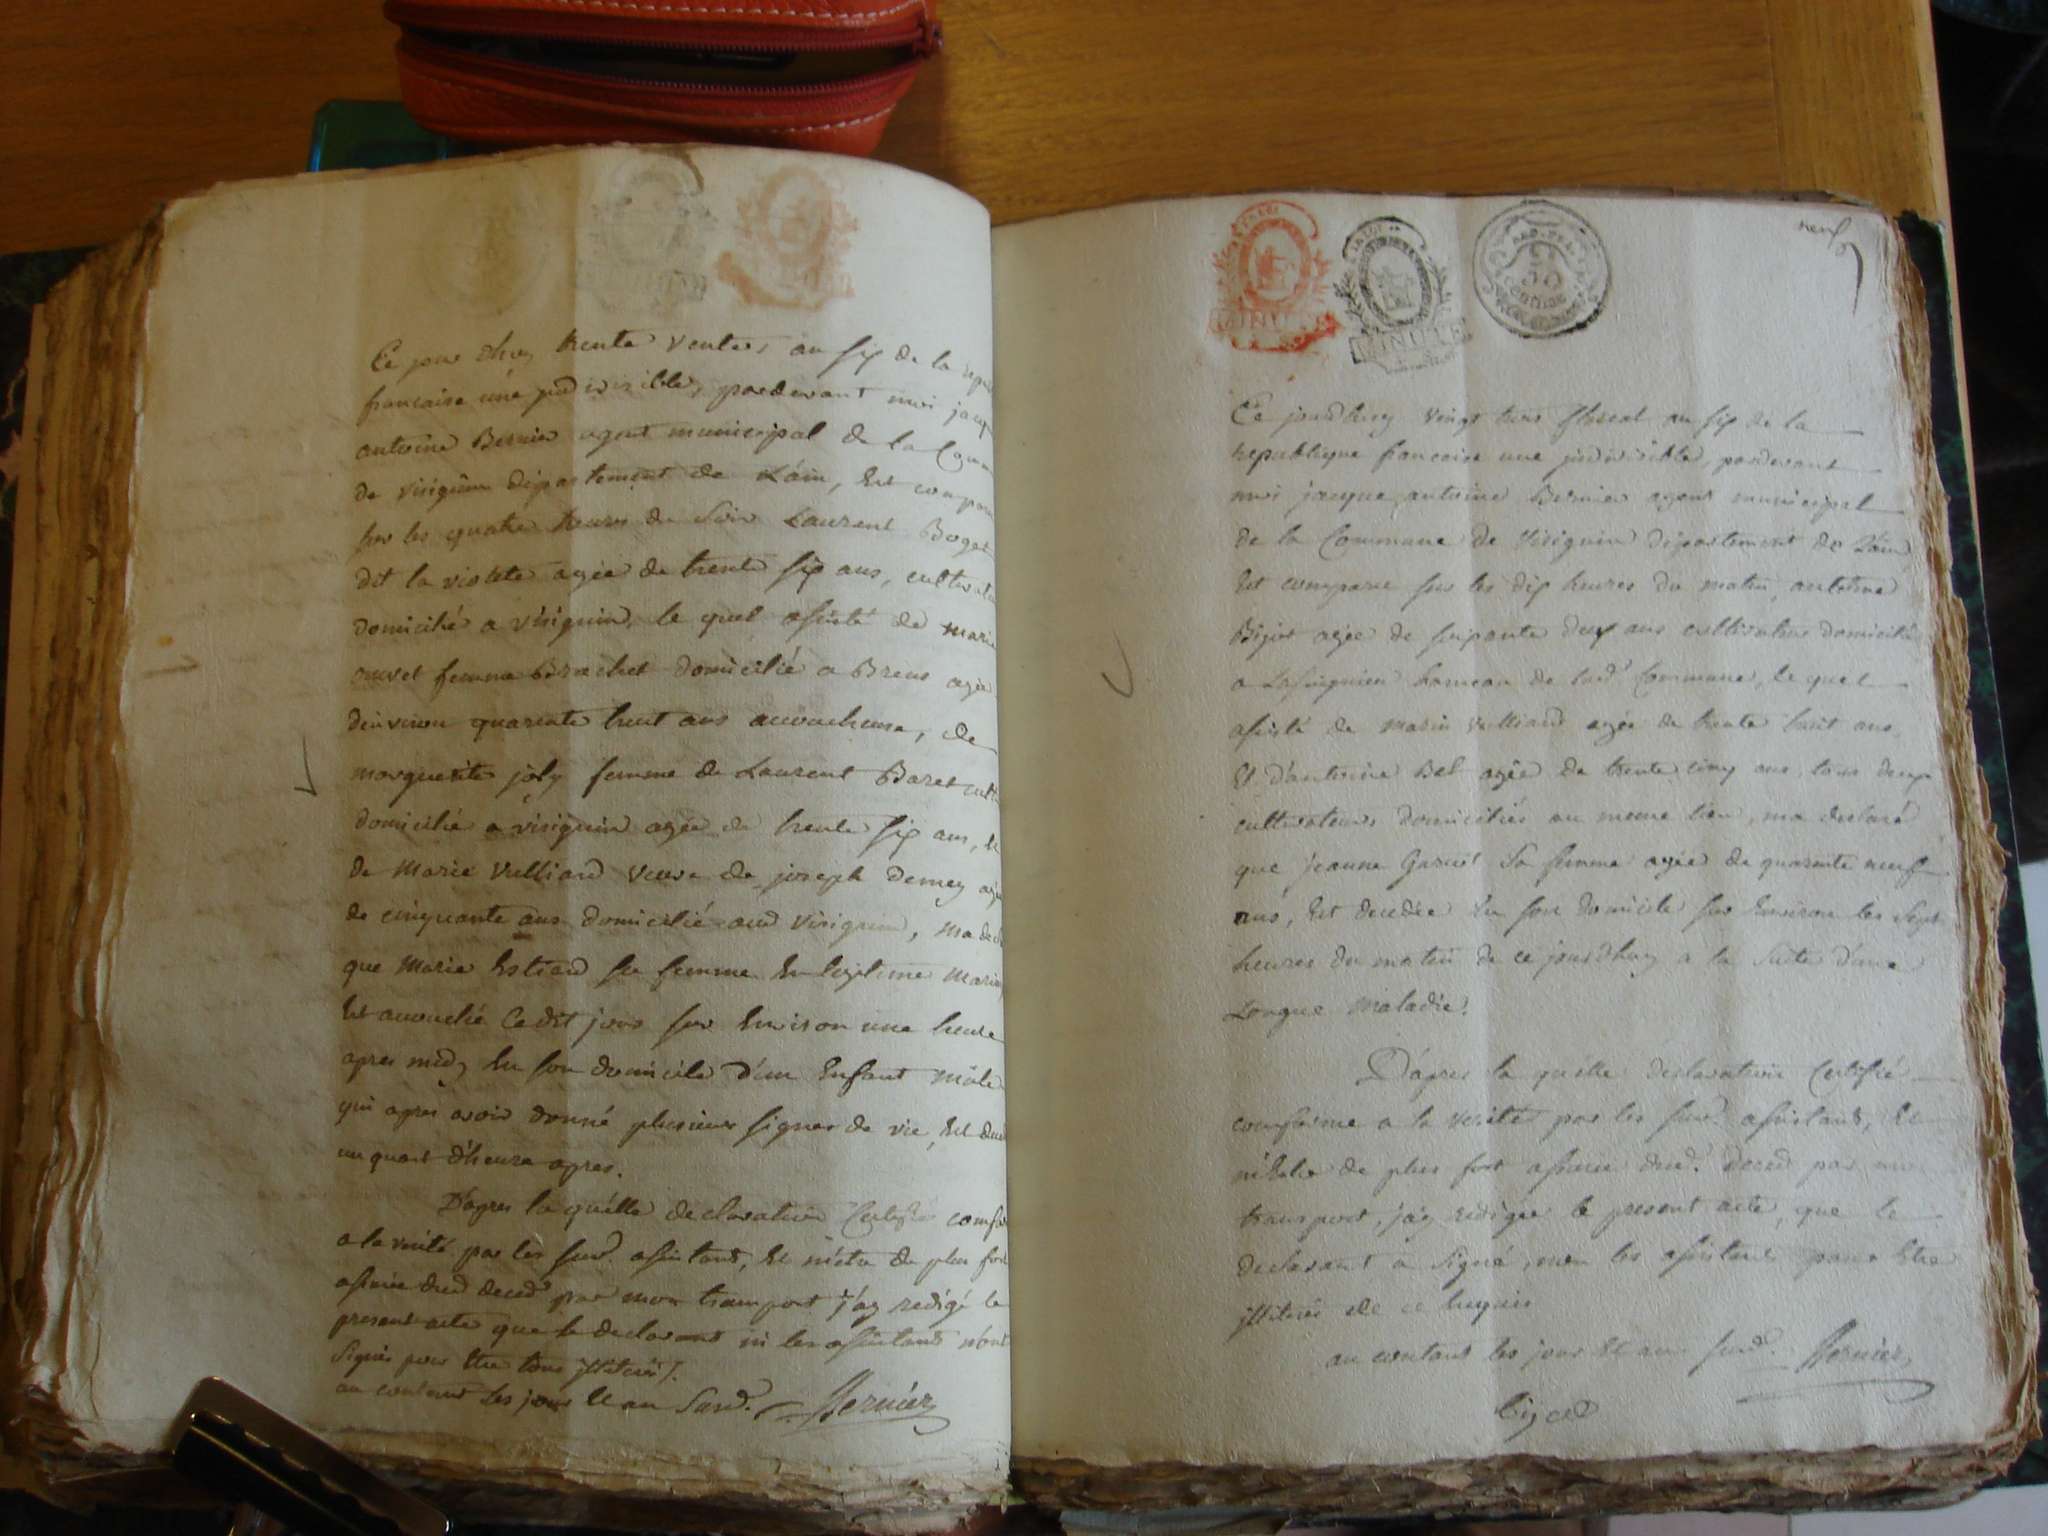 Ce jourdhuy trente ventos an six de la repu
francaise une indivisible, pardevant moi jacq
antoine Bernier agent municipal de la Comm
de virignin département de Lain, Est comparu
sur les quatre heures du soir Laurent Boget
dit la violete agée de trente six ans, cultivat
domicilié a virignin, le quel assisté de Marie
femme Brachet domicilié a Brens agée
denviron quarente huit ans accoucheuse, de
marguerite joly femme de Laurent Baret cult
domicilié a virignin agée de trente six ans, et
de Marie Vulliard veuve de joseph Demey agé
de cinquante ans domicilié aud virignin, ma de
que Marie sa femme En legitime Mariag
Est accouché Cedit jour sur Environ une heure
apres midy En son domicile d'un Enfant mâle
qui apres avoir donné plusieurs signes de vie, Est deced
un quart d'heure apres.
D'apres la quélle declaration Certifié confor
a la verité par les susd. assistants, Et m'etre de plus fort
assurée dud deced par mon transport j'ay redigé le
present acte que le declarant ni les assistants n'ont
signés pour Etre tous illiterés.
au contenus les jour Et an Susd. Bernier
neuf
9
LA LOI
MINUTE
LA LOI
MINUTE
50
CENTIME
Ce jourdhuy vingt trois floreal an six de la
republique francaise une indivisible, pardevant
moi jacque antoine Bernier agent municipal
de la Commune de Virignin département de Lain
Est comparu sur les dix heures du matin, antoine
Bigot agée de soixante deux ans cultivateur domicilié
a hameau de lad Commune, le quel
assisté de Marin Vulliard agée de trente huit ans,
Et d'antoine Bel agée de trente cinq ans, tous deux
cultivateurs domiciliés au meme lieu, ma declaré
que jeanne sa femme agée de quarente neuf
ans, Est decedée En son domicile sur Environ les Sept
heures du matin de ce jourdhuy a la Suite d'une
Longue Maladie.
D'apres la quélle declaration Certifié
conforme a la verité par les susd. assistants, Et
m'Etre de plus fort assurée dud. Deced par mon
transport, j'ay redigée le present acte, que le
declarant a signé, non les assistants pour Etre
illiterés de ce
au contenus les jour Et an susd. Bernier